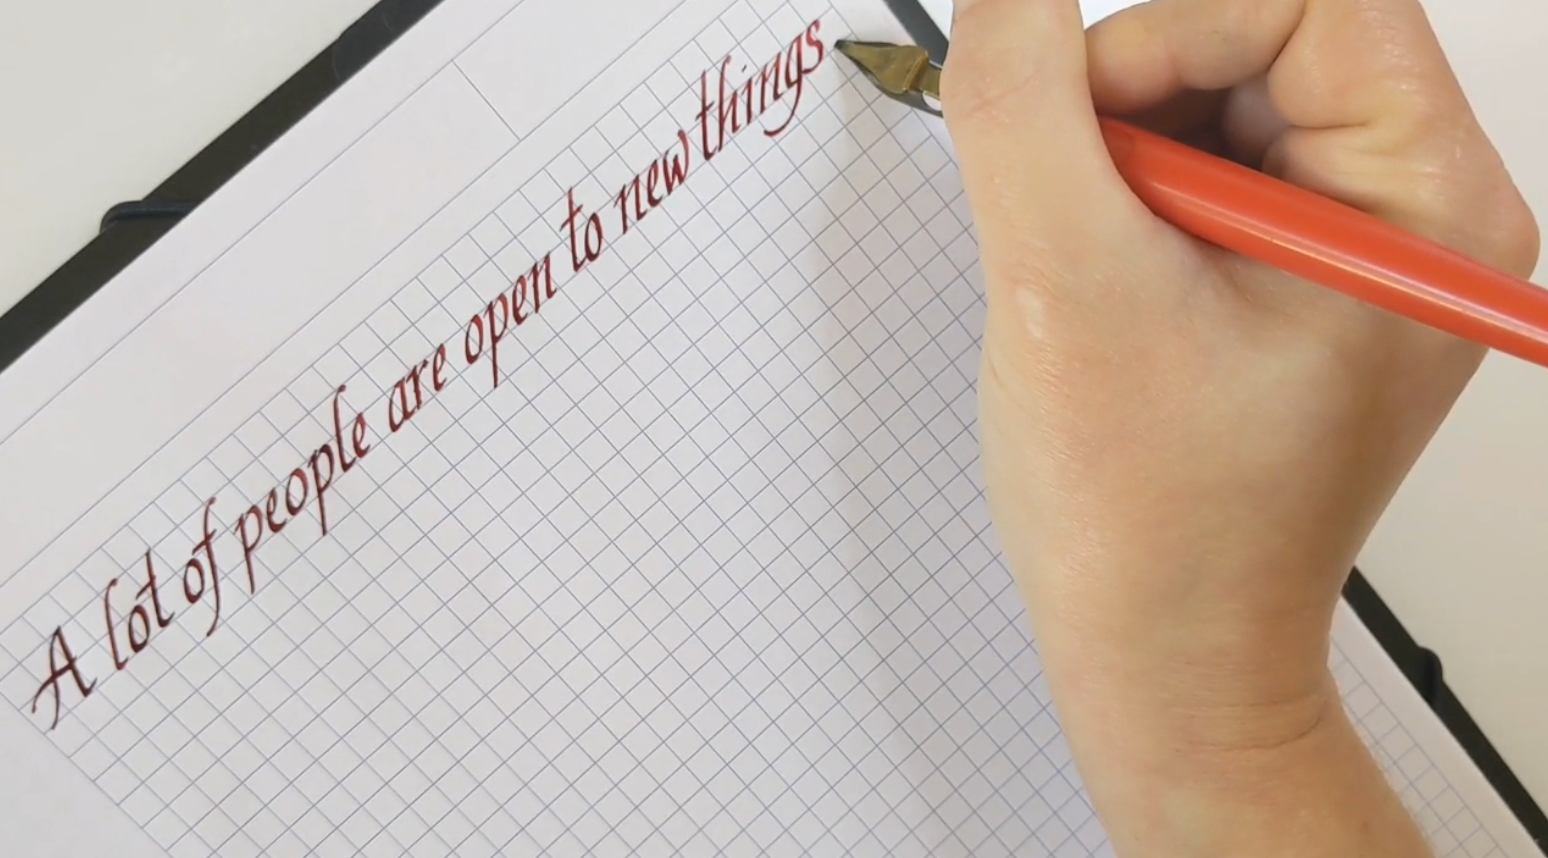 A lot of people are open to new things